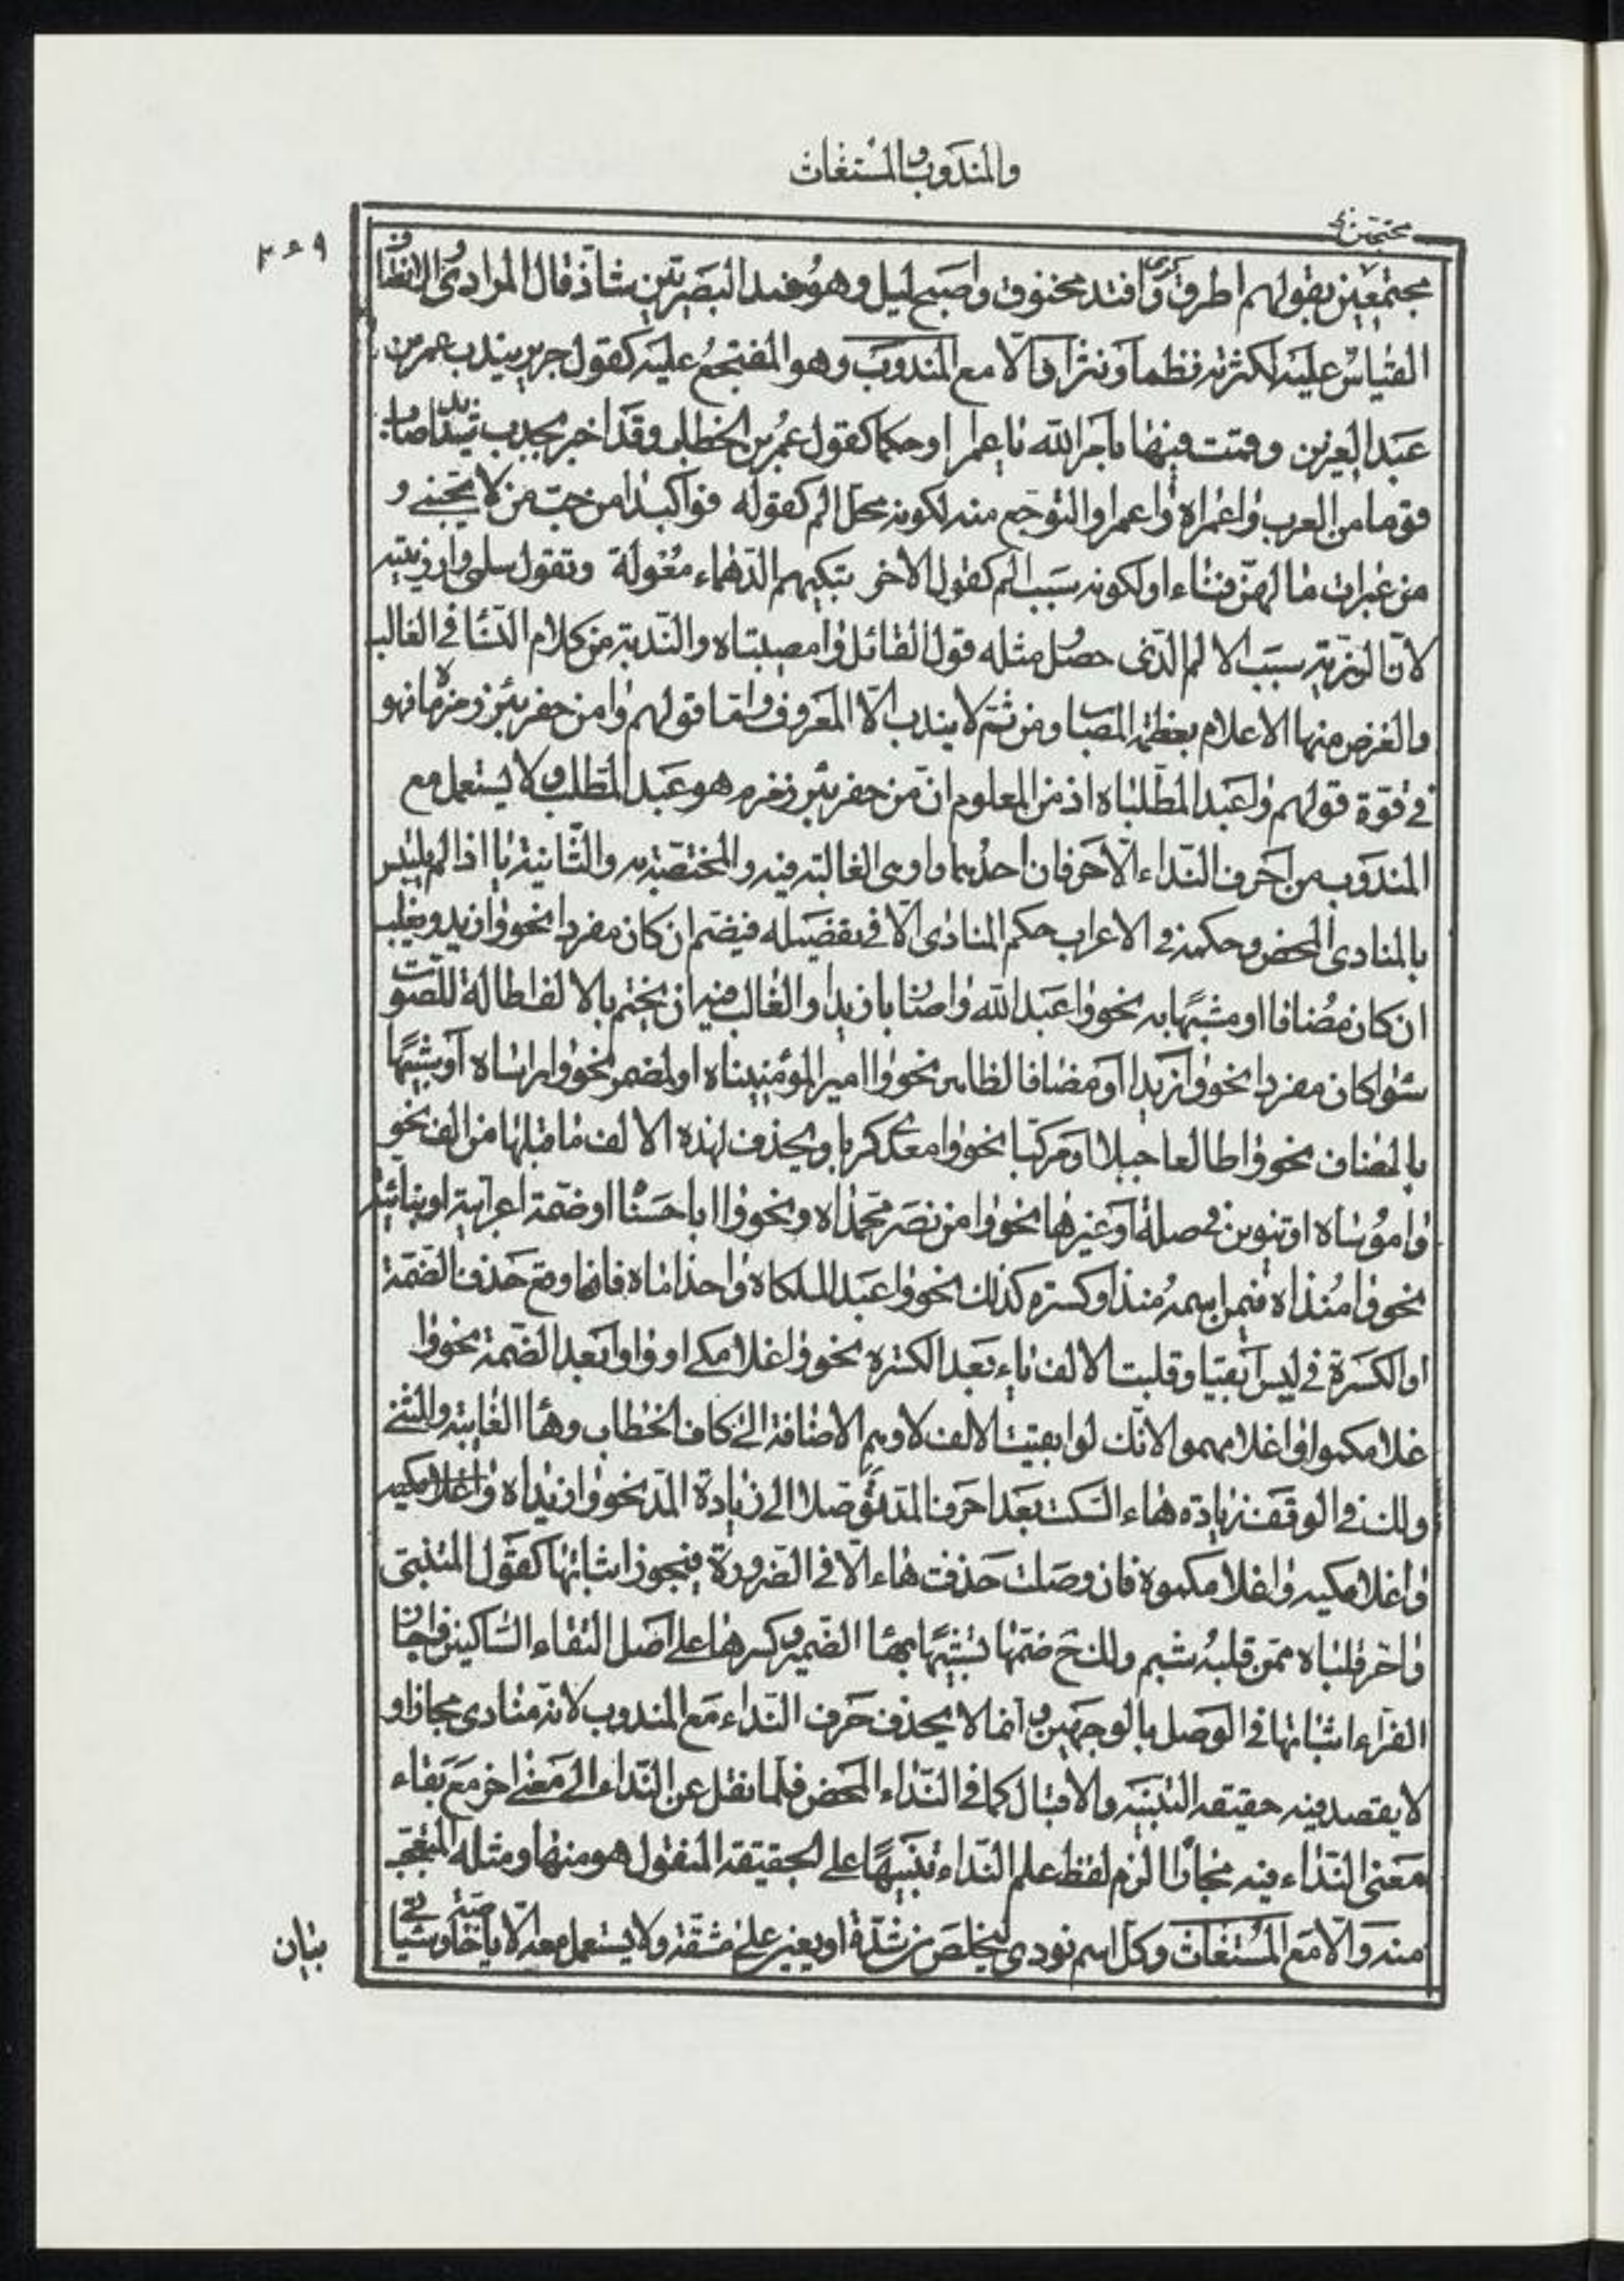 والمندوب والمستغاث
محتجين
٤٦٩
محتجين بقولهم اطرق كرى وافتد مخنوق واصبح ليل وهو عند البصريين شاذ قال المرادى والانصاف
القياس عليه لكثرته نظما ونثرا والا مع المندوب وهو المفتجع عليه كقول جرير يندب عمر بن
عبد العزيز وقمت فينا بامر الله يا عمرا او حكما كقول عمر بن الخطاب وقد اخبر بجدب شديد اصاب
قوما من العرب واعمراه واعمراه والتوجع منه لكونه محل الم كقوله فواكبدا من حب من لا يحبني و
من عبرات ما لهن فناء او لكونه سبب الم كقول الاخر تبكيهم الدهماء معولة وتقول سلمى وارزيتيه
لان الرزية سبب الالم الذى حصل مثله قول القائل وامصيبتاه والندبة من كلام النساء فى الغالب
والغرض منها الاعلام بعظمة المصاب ومن ثم لا يندب الا المعروف واما قولهم وامن حفر بئر زمزماه فهو
فى قوة قولهم واعبد المطلباه اذ من المعلوم ان من حفر بئر زمزم هو عبد المطلب ولا يستعمل مع
المندوب من احرف النداء الا حرفان احدهما وا وهى الغالبة فيه والمختصة به والثانية يا اذا لم يلتبس
بالمنادى المحض وحكمه فى الاعراب حكم المنادى الا فى تفصيله فيضم ان كان مفردا نحو وازيد وينصب
ان كان مضافا او مشبها به نحو واعبد الله واضاربا زيدا والغالب فيه ان يختم بالالف اطالة للصوت
سواء كان مفردا نحو وازيدا او مضافا لظاهر نحو واامير المؤمنيناه او لمضمر نحو واراساه او شبيها
بالمضاف نحو واطالعا جبلا او مركبا نحو وامعدى كربا ويحذف لهذه الالف ما قبلها من الف نحو
واموساه او تنوين فى صلة او غيرها نحو وامن نصر محمداه ونحو واابا حسنا او ضمة اعرابية او بنائية
نحو وامنذاه فيمن اسمه منذ او كسرة كذلك نحو واعبد الملكاه واحذاماه فان اوقع حذف الضمة
او الكسرة فى ليس ابقيا وقلبت الالف ياء بعد الكسرة نحو واغلامكى او واوا بعد الضمة نحو وا
غلامكموا واغلامهمو لانك لو ابقيت الالف لاوهم الاضافة الى كاف الخطاب وهاء الغايبة والمثنى
ولك فى الوقف زيادة هاء السكت بعد احرف المد توصلا الى زيادة المد نحو وازيداه واغلامكيه
واغلامكيه واغلامكموه فان وصلت حذفت هاء الا فى الضرورة فيجوز اثباتها كقول المتنبى
واحر قلباه ممن قلبه شبم ولك ح ضمها تشبيها بهاء الضمير وكسرها على اصل التقاء الساكنين واجاز
الفراء اثباتها فى الوصل بالوجهين وانما لا يحذف حرف النداء مع المندوب لانه منادى مجازا و
لا يقصد فيه حقيقة التنبيه والاقبال كما فى النداء المحض فلما نقل عن النداء الى معنى اخر مع بقاء
معنى النداء فيه مجازا الزم لفظ علم النداء تنبيها على الحقيقة المنقول هو منها ومثله المتعجب
منه والا مع المستغاث وكل اسم نودى ليخلص من شدة او يعين على مشقة ولا يستعمل معه الا يا خاصة وسياتى
بيان